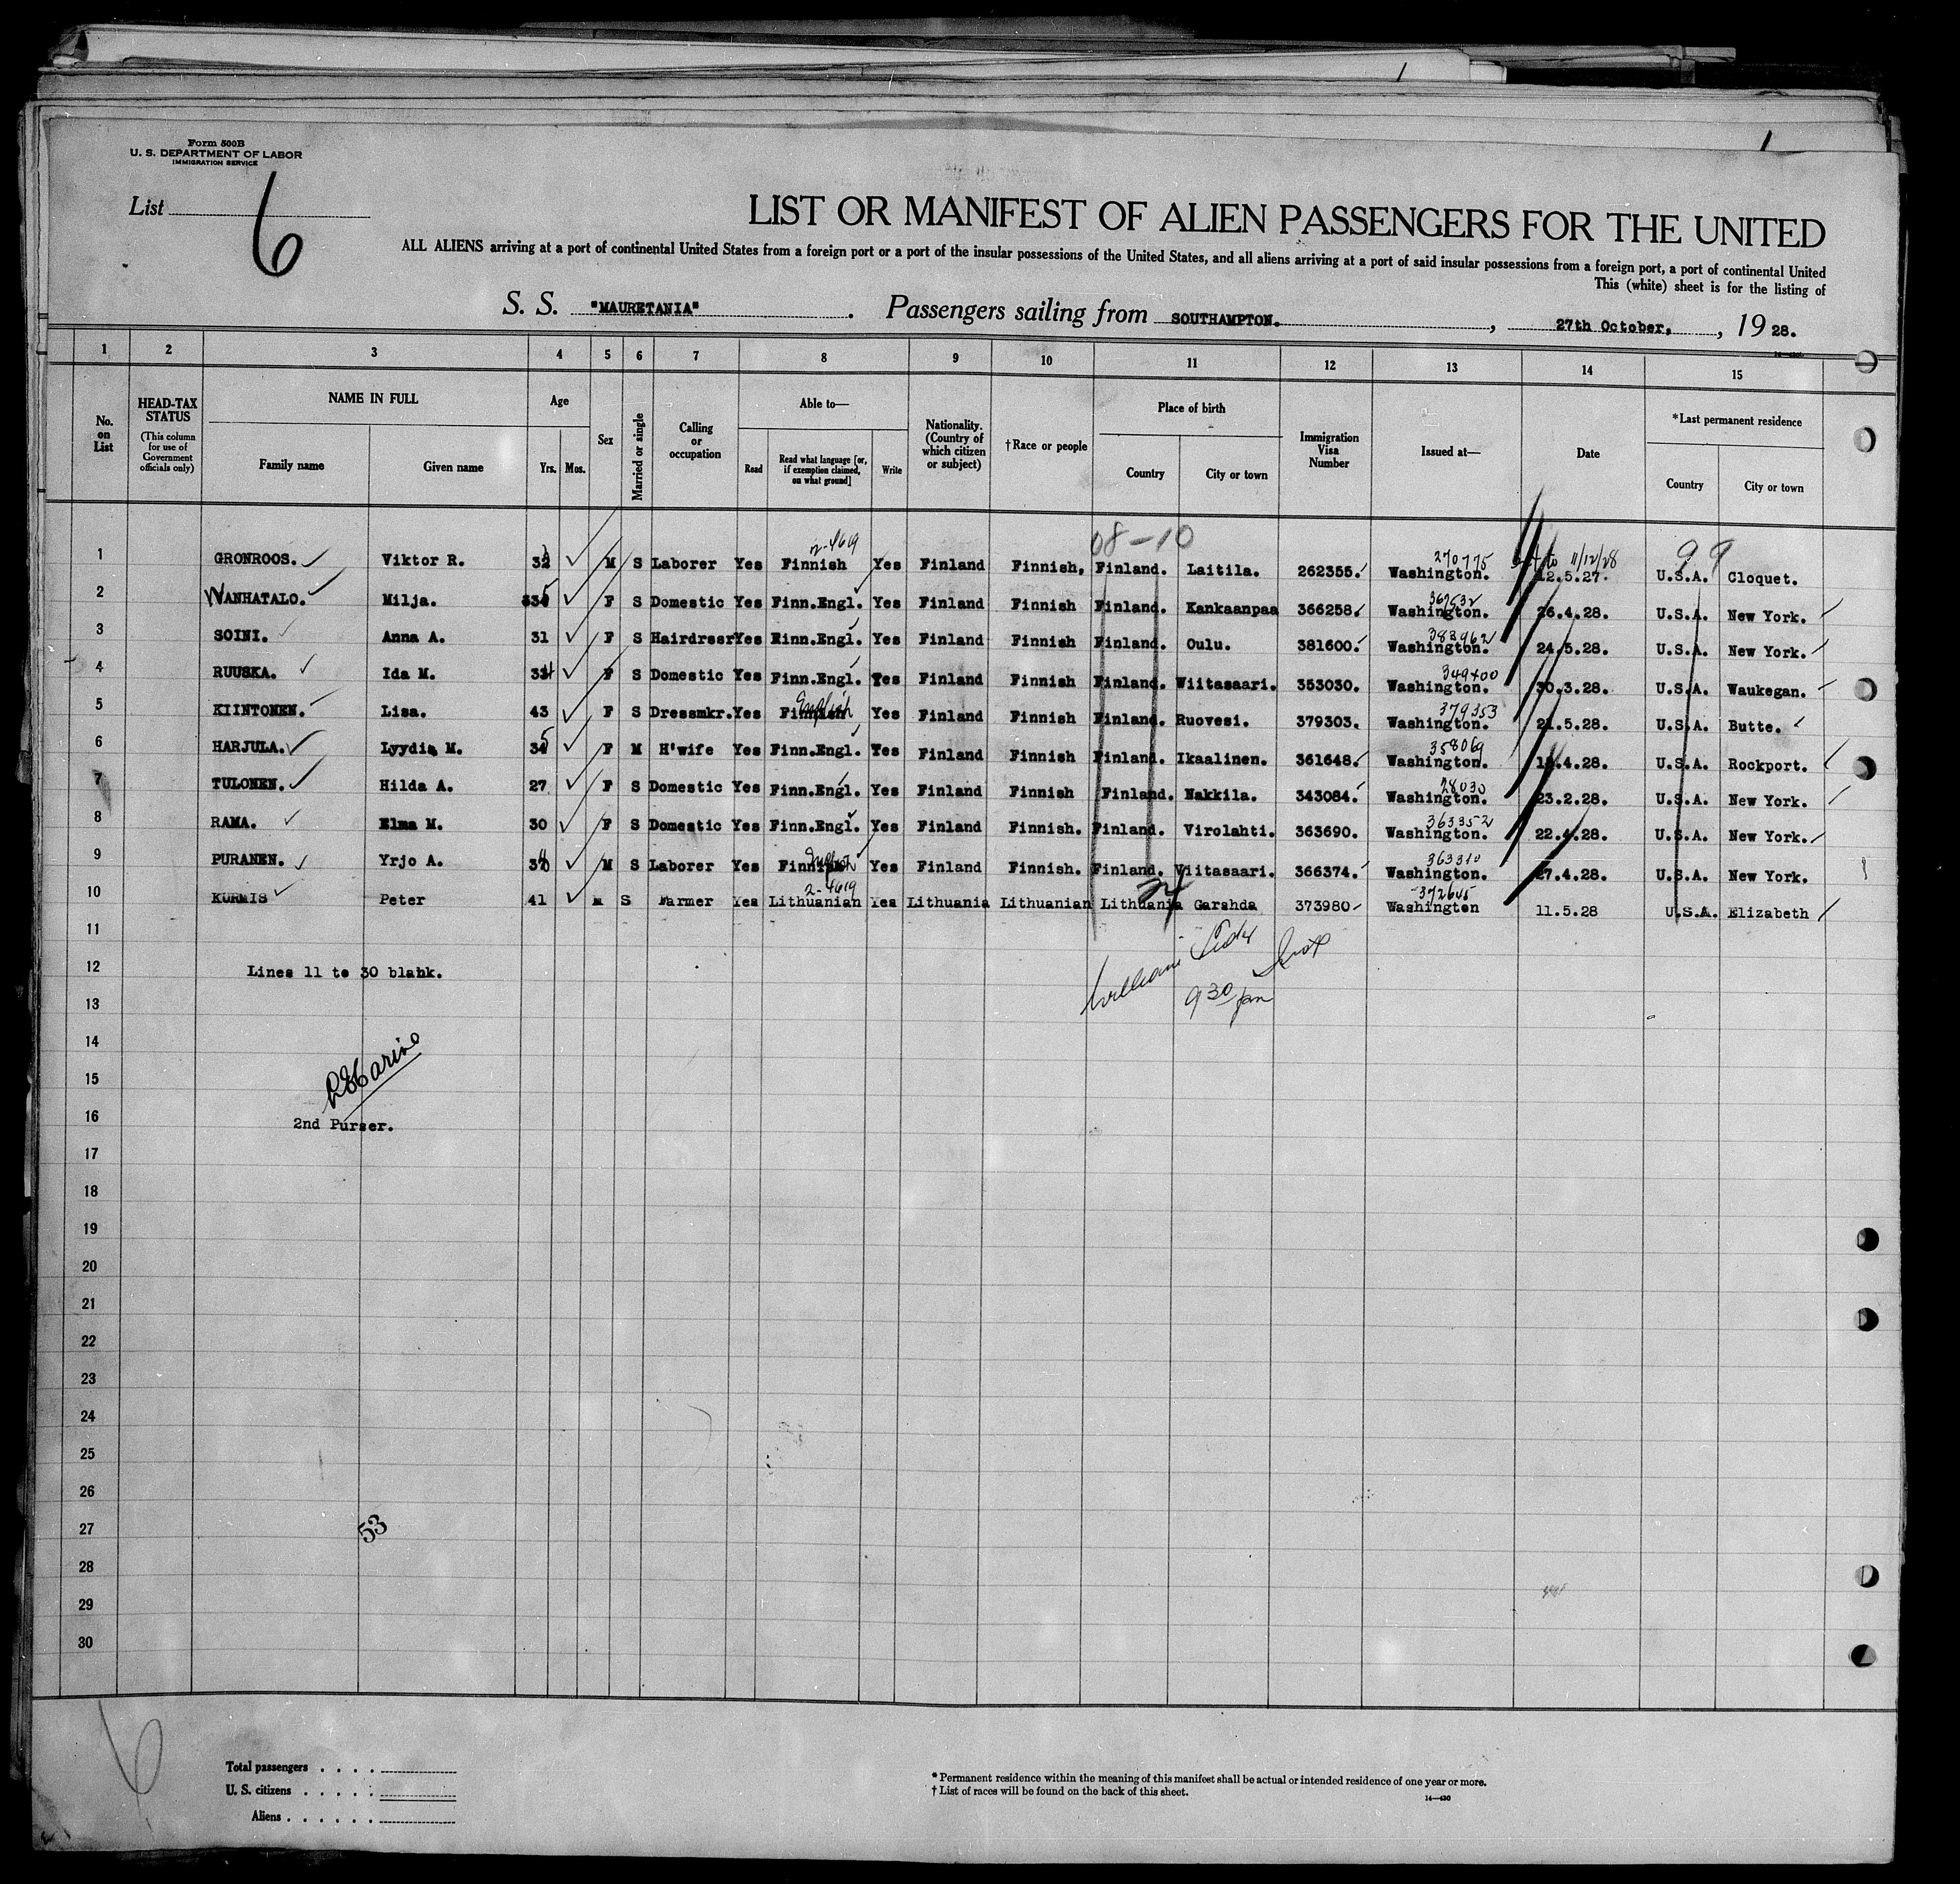 Form 500B
U. S. DEPARTMENT OF LABOR
IMMIGRATION SERVICE
List 6
LIST OR MANIFEST OF ALIEN PASSENGERS FOR THE UNITED
ALL ALIENS arriving at a port of continental United States from a foreign port or a port of the insular possessions of the United States, and all aliens arriving at a port of said insular possessions from a foreign port, a port of continental United
This (white) sheet is for the listing of
S. S. "MAURETANIA". Passengers sailing from SOUTHAMPTON., 27th October, , 19 28.
1 2 3 4 5 6 7 8 9 10 11 12 13 14 15
No. on List
HEAD-TAX STATUS
(This column for use of Government officials only)
NAME IN FULL
Family name Given name
Age
Yrs. Mos.
Sex
Married or single
Calling or occupation
Able to—
Read Read what language [or, if exemption claimed, on what ground] Write
Nationality. (Country of which citizen or subject)
†Race or people
Place of birth
Country City or town
Immigration Visa Number
Issued at—
Date
*Last permanent residence
Country City or town
08-10 99
2-4619 270775 11/12/28
1 GRONROOS. Viktor R. 32 M S Laborer Yes Finnish Yes Finland Finnish, Finland. Laitila. 262355. Washington. 12.5.27. U.S.A. Cloquet.
2 WANHATALO. Milja. F S Domestic Yes Finn.Engl. Yes Finland Finnish Finland. Kankaanpaa 366258. Washington. 26.4.28. U.S.A. New York.
383962
3 SOINI. Anna A. 31 F S Hairdresr Yes Finn.Engl. Yes Finland Finnish Finland. Oulu. 381600. Washington. 24.5.28. U.S.A. New York.
349400
4 RUUSKA. Ida M. 34 F S Domestic Yes Finn.Engl. Yes Finland Finnish Finland. Wiitasaari. 353030. Washington. 30.3.28. U.S.A. Waukegan.
English 379353
5 KIINTONEN. Lisa. 43 F S Dressmkr. Yes Finnish Yes Finland Finnish Finland. Ruovesi. 379303. Washington. 21.5.28. U.S.A. Butte.
358069
6 HARJULA. Lyydia M. 35 F M H'wife Yes Finn.Engl. Yes Finland Finnish Finland. Ikaalinen. 361648. Washington. U.S.A. Rockport.
28030
7 TULONEN. Hilda A. 27 F S Domestic Yes Finn.Engl. Yes Finland Finnish Finland. Nakkila. 343084. Washington. 23.2.28. U.S.A. New York.
363352
8 RAMA. Elma M. 30 F S Domestic Yes Finn.Engl. Yes Finland Finnish. Finland. Virolahti. 363690. Washington. 22.4.28. U.S.A. New York.
363310
9 PURANEN. Yrjo A. M S Laborer Yes Finnish Yes Finland Finnish. Finland. Viitasaari. 366374. Washington. 27.4.28. U.S.A. New York.
2-4619 372605
10 KURMIS Peter 41 M S Farmer Yes Lithuanian Yes Lithuania Lithuanian Lithuania Garshda 373980 Washington 11.5.28 U.S.A. Elizabeth
11
12 Lines 11 to 30 blank.
William
9 30
13
14
15
16 2nd Purser.
17
18
19
20
21
22
23
24
25
26
27 53
28
29
30
6
Total passengers . . . .
U. S. citizens . . . . .
Aliens . . . . . .
* Permanent residence within the meaning of this manifest shall be actual or intended residence of one year or more.
† List of races will be found on the back of this sheet.
14—430